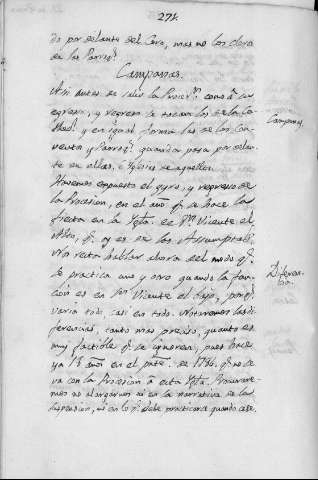 271.
do por delante del Coro, mas no los clero
de las Parroq.s
Campanas.
Assi antes de salir la Proces.n como à su
egreso, y regreso se tocan las de la Ca-
thed.l y en igual forma las de los Con-
ventos y Parroq.s quando pasa por delan-
te de ellas, è Iglesias de aquellos.
Campanas
Havemos expuesto el gyro, y regreso de
la Procesion, en el año q.e se hace la
fiesta en la Ygla. de Sn. Vicente el
Alto, q.e oy es de los
Nos resta hablar ahora del modo q.e
se practica uno y otro quando la fun-
cion es en Sn. Vicente el bajo, porq.e
varia todo, casi en todo. Notaremos las di-
Diferencias
ferencias, tanto mas preciso, quanto es
muy factible q.e se ignoren, pues hace
ya 18 años en el pnte. de 1786. q.e no se
va con la Procesion à esta Ygla. Procurare-
mos no alargarnos ni en la narrativa de la
suspension, ni en lo q.e debe practicarse quando cese.